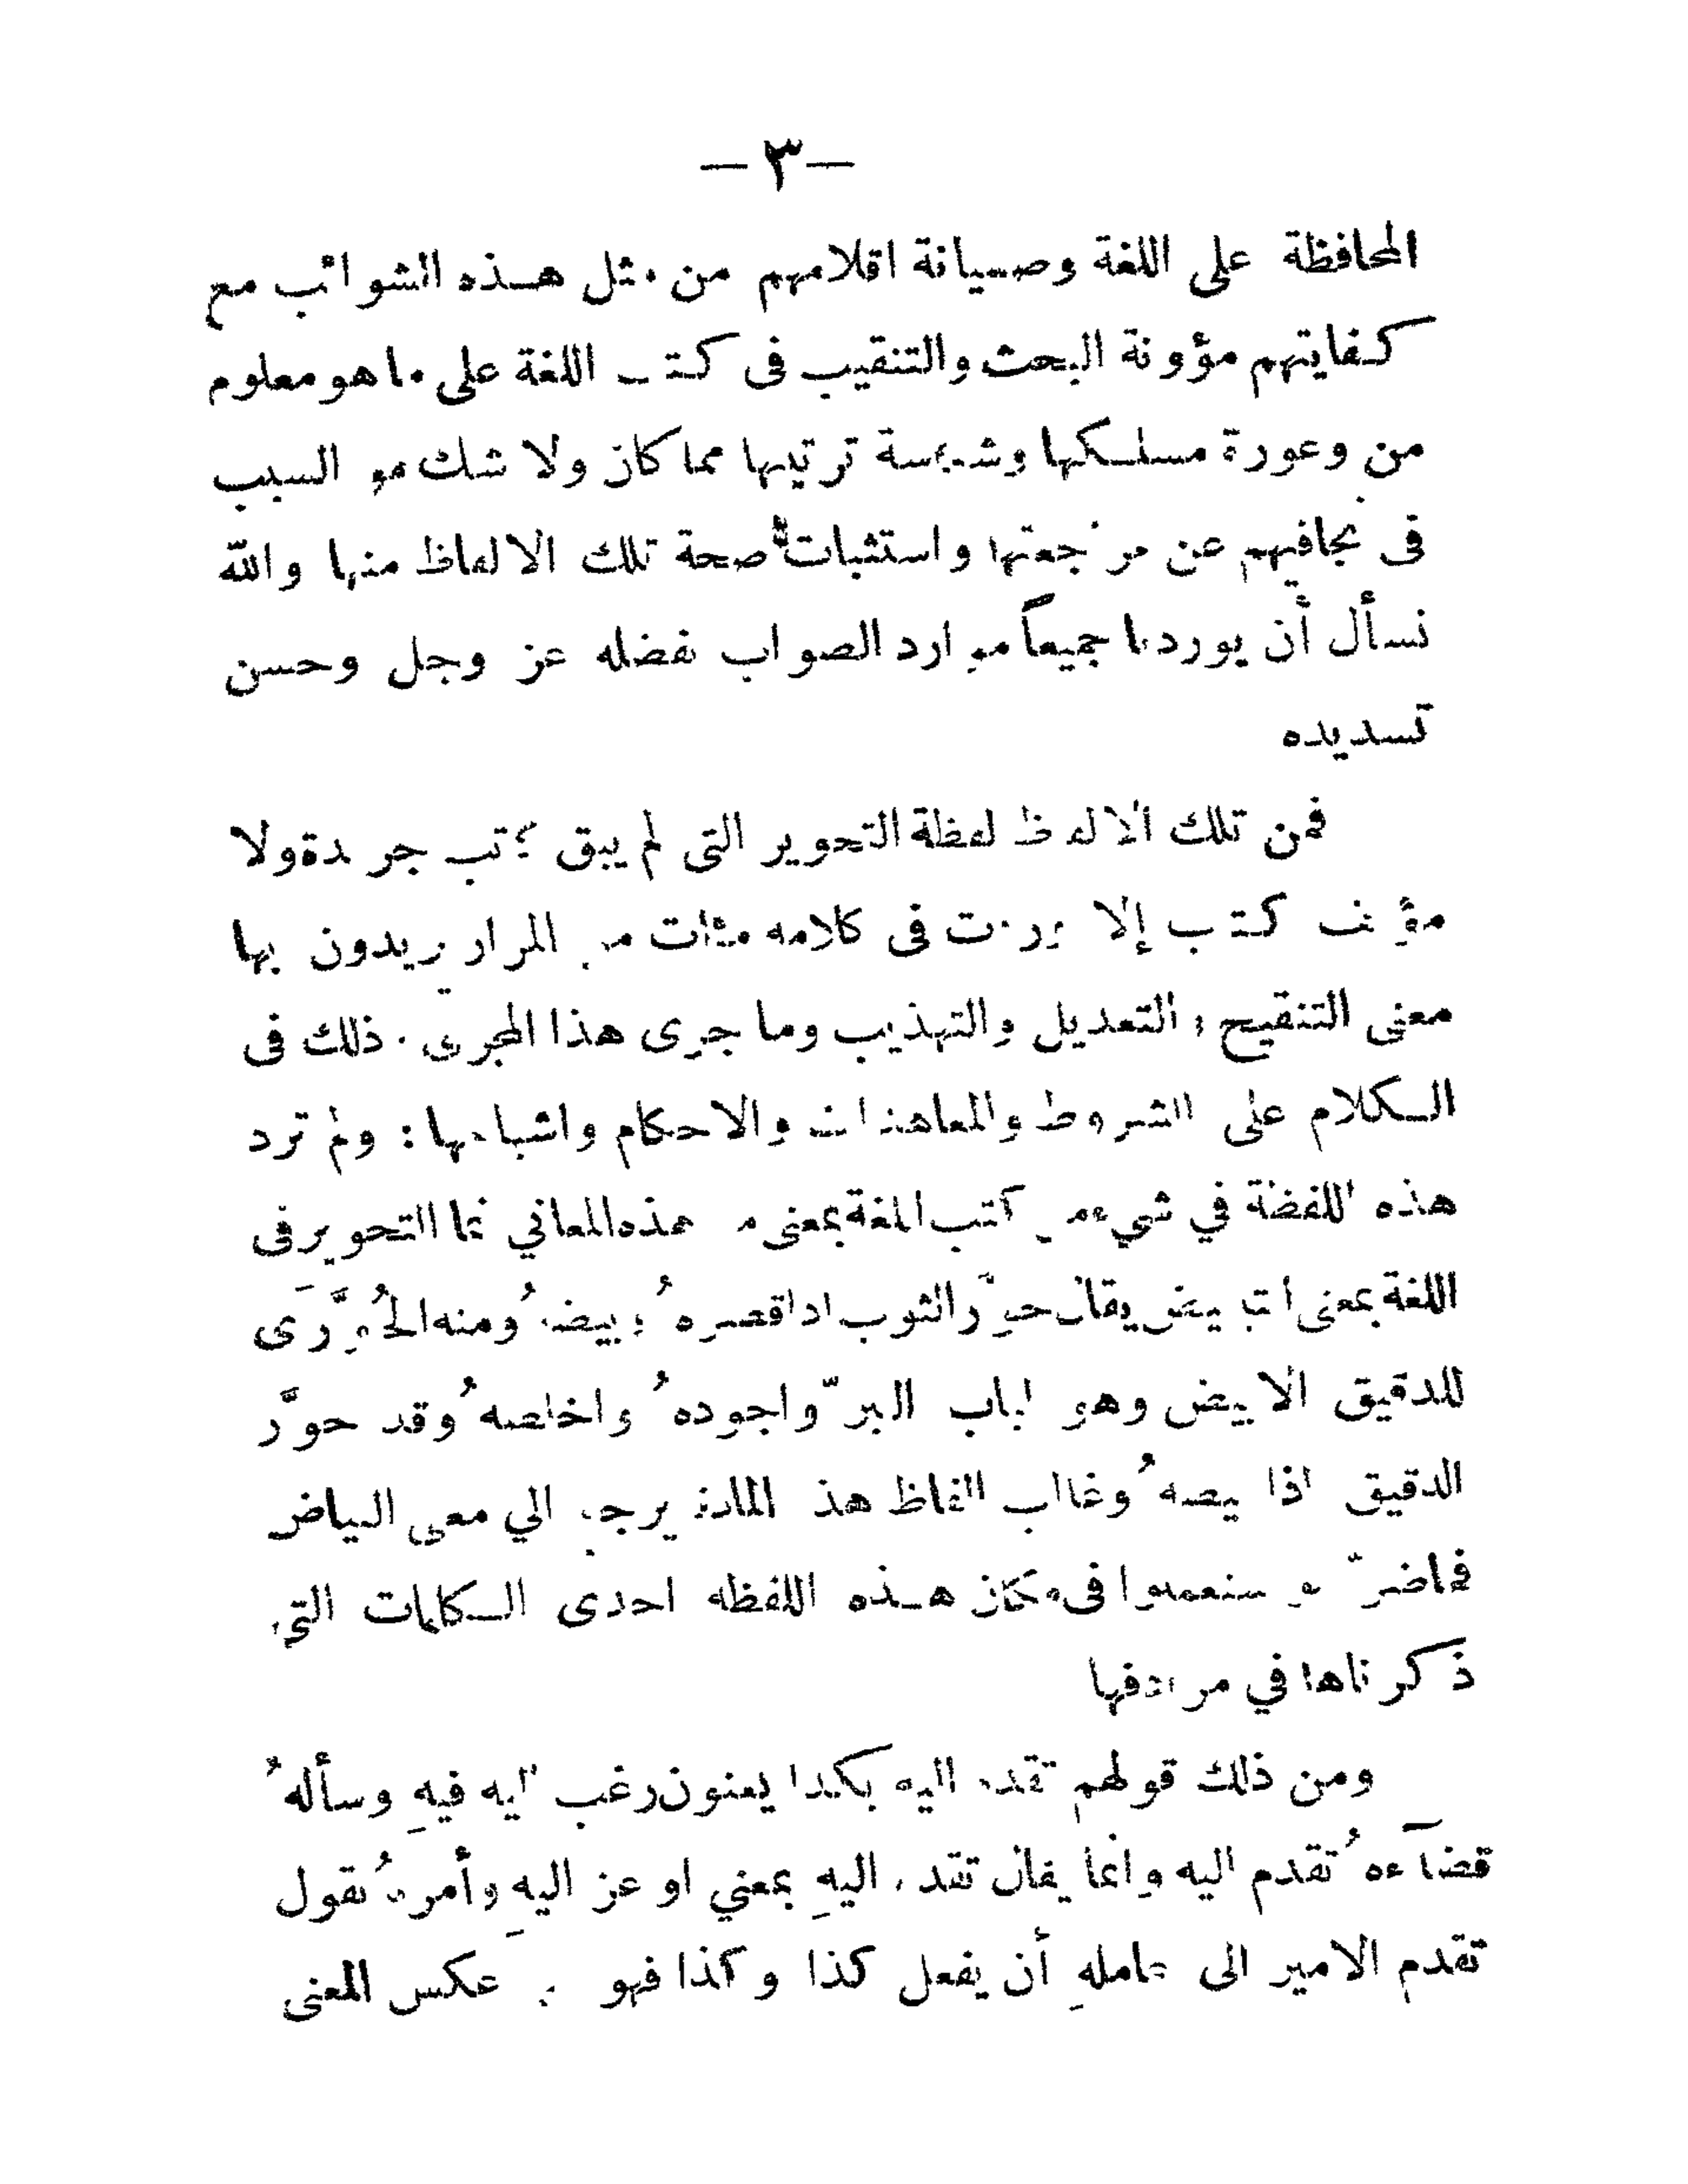 — ٣ —
المحافظة على اللغة وصيانة اقلامهم من مثل هذه الشوائب مع
كفايتهم مؤونة البحث والتنقيب فى كتب اللغة على ما هو معلوم
من وعورة مسلكها وشكاسة ترتيبها مما كان ولا شك هو السبب
فى تجافيهم عن مراجعتها واستثبات صحة تلك الالفاظ منها والله
نسأل أن يوردنا جميعاً موارد الصواب بفضله عز وجل وحسن
تسديده
فمن تلك الالفاظ لفظة التحوير التى لم يبق كاتب جريدة ولا
مؤلف كتاب إلا وردت فى كلامه مئات من المرار يريدون بها
معنى التنقيح والتعديل والتهذيب وما جرى هذا المجرى. ذلك فى
الكلام على الشروط والمعاهدات والاحكام واشباهها : ولم ترد
هذه اللفظة في شيء من كتب اللغة بمعنى من هذه المعاني انما التحوير فى
اللغة بمعنى التبييض يقال حوَّر الثوب اذا قصره ُ وبيضهُ ومنه الحُوَّرَى
للدقيق الابيض وهو لباب البرّ واجوده ُ واخلصهُ وقد حوَّر
الدقيق اذا بيضهُ وغالب الفاظ هذه المادة يرجع الي معنى البياض
فى مكان هذه اللفظة احدى الكلمات التى
ذكرناها في مرادفها
ومن ذلك قولهم تقدم اليه بكذا يعنون رغب اليه فيهِ وسألهُ
قضآءهُ تقدم اليه وانما يقال تقدم اليهِ بمعني اوعز اليهِ وأمرهُ تقول
تقدم الامير الى عاملهِ أن يفعل كذا وكذا فهو عكس المعنى